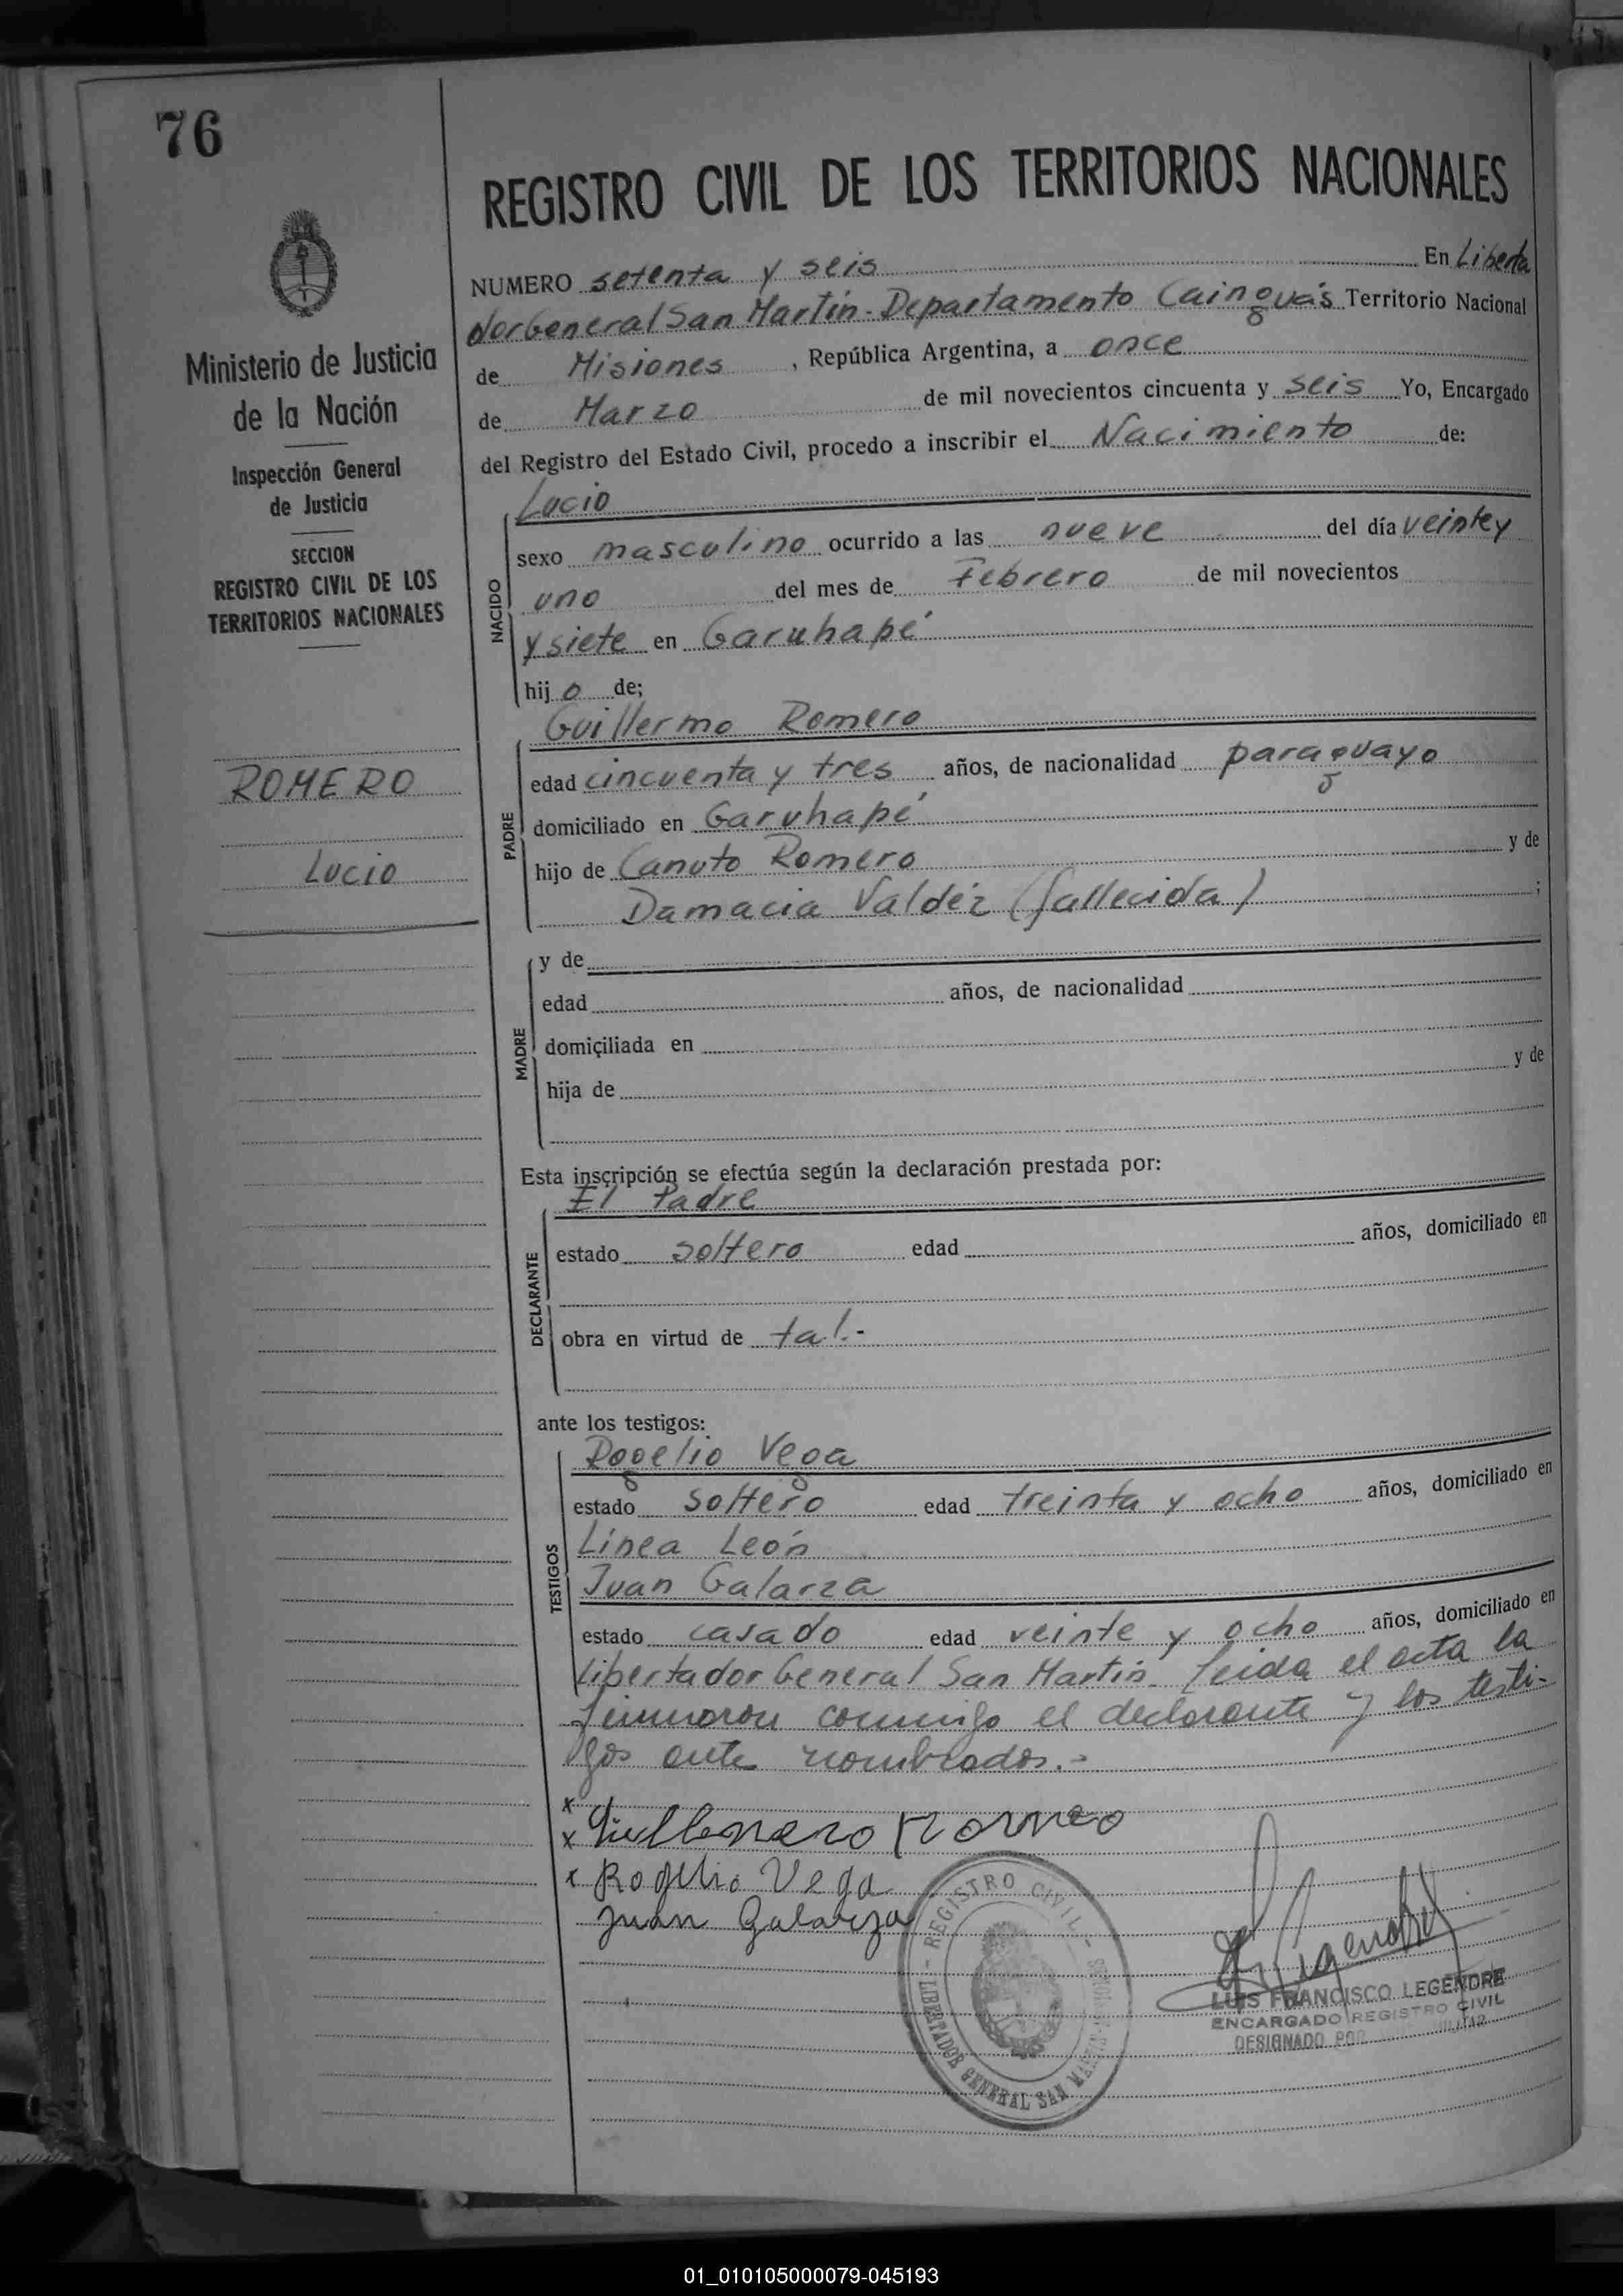 76
REGISTRO CIVIL DE LOS TERRITORIOS NACIONALES
Ministerio de Justicia
de la Nación
Inspección General
de Justicia
SECCION
REGISTRO CIVIL DE LOS
TERRITORIOS NACIONALES
ROMERO
Lucio
NUMERO setenta y seis En Liberta
dor General San Martín - Departamento Cainguás Territorio Nacional
de Misiones, República Argentina, a once
de Marzo de mil novecientos cincuenta y seis Yo, Encargado
del Registro del Estado Civil, procedo a inscribir el Nacimiento de:
Lucio
NACIDO
sexo masculino ocurrido a las nueve del día veinte y
uno del mes de Febrero de mil novecientos
y siete en Garuhapé
hijo de;
Guillermo Romero
PADRE
edad cincuenta y tres años, de nacionalidad paraguayo
domiciliado en Garuhapé
hijo de Canuto Romero y de
Damacia Valdéz (fallecida) ;
MADRE
y de
edad años, de nacionalidad
domiciliada en
hija de y de
Esta inscripción se efectúa según la declaración prestada por:
El Padre
DECLARANTE
estado soltero edad años, domiciliado en
obra en virtud de tal.-
ante los testigos:
Rogelio Vega
TESTIGOS
estado soltero edad treinta y ocho años, domiciliado en
Línea León
Juan Galarza
estado casado edad veinte y ocho años, domiciliado en
Libertador General San Martín. Leida el acta la
firmaron conmigo el declarante y los testi-
gos ante nombrados.-
x
x Romero
x Rogelio Vega
Juan Galarza
REGISTRO CIVIL
LIBERTADOR GENERAL SAN MARTIN
LUIS FRANCISCO LEGENDRE
ENCARGADO REGISTRO CIVIL
DESIGNADO POR MILITAR
01_010105000079-045193